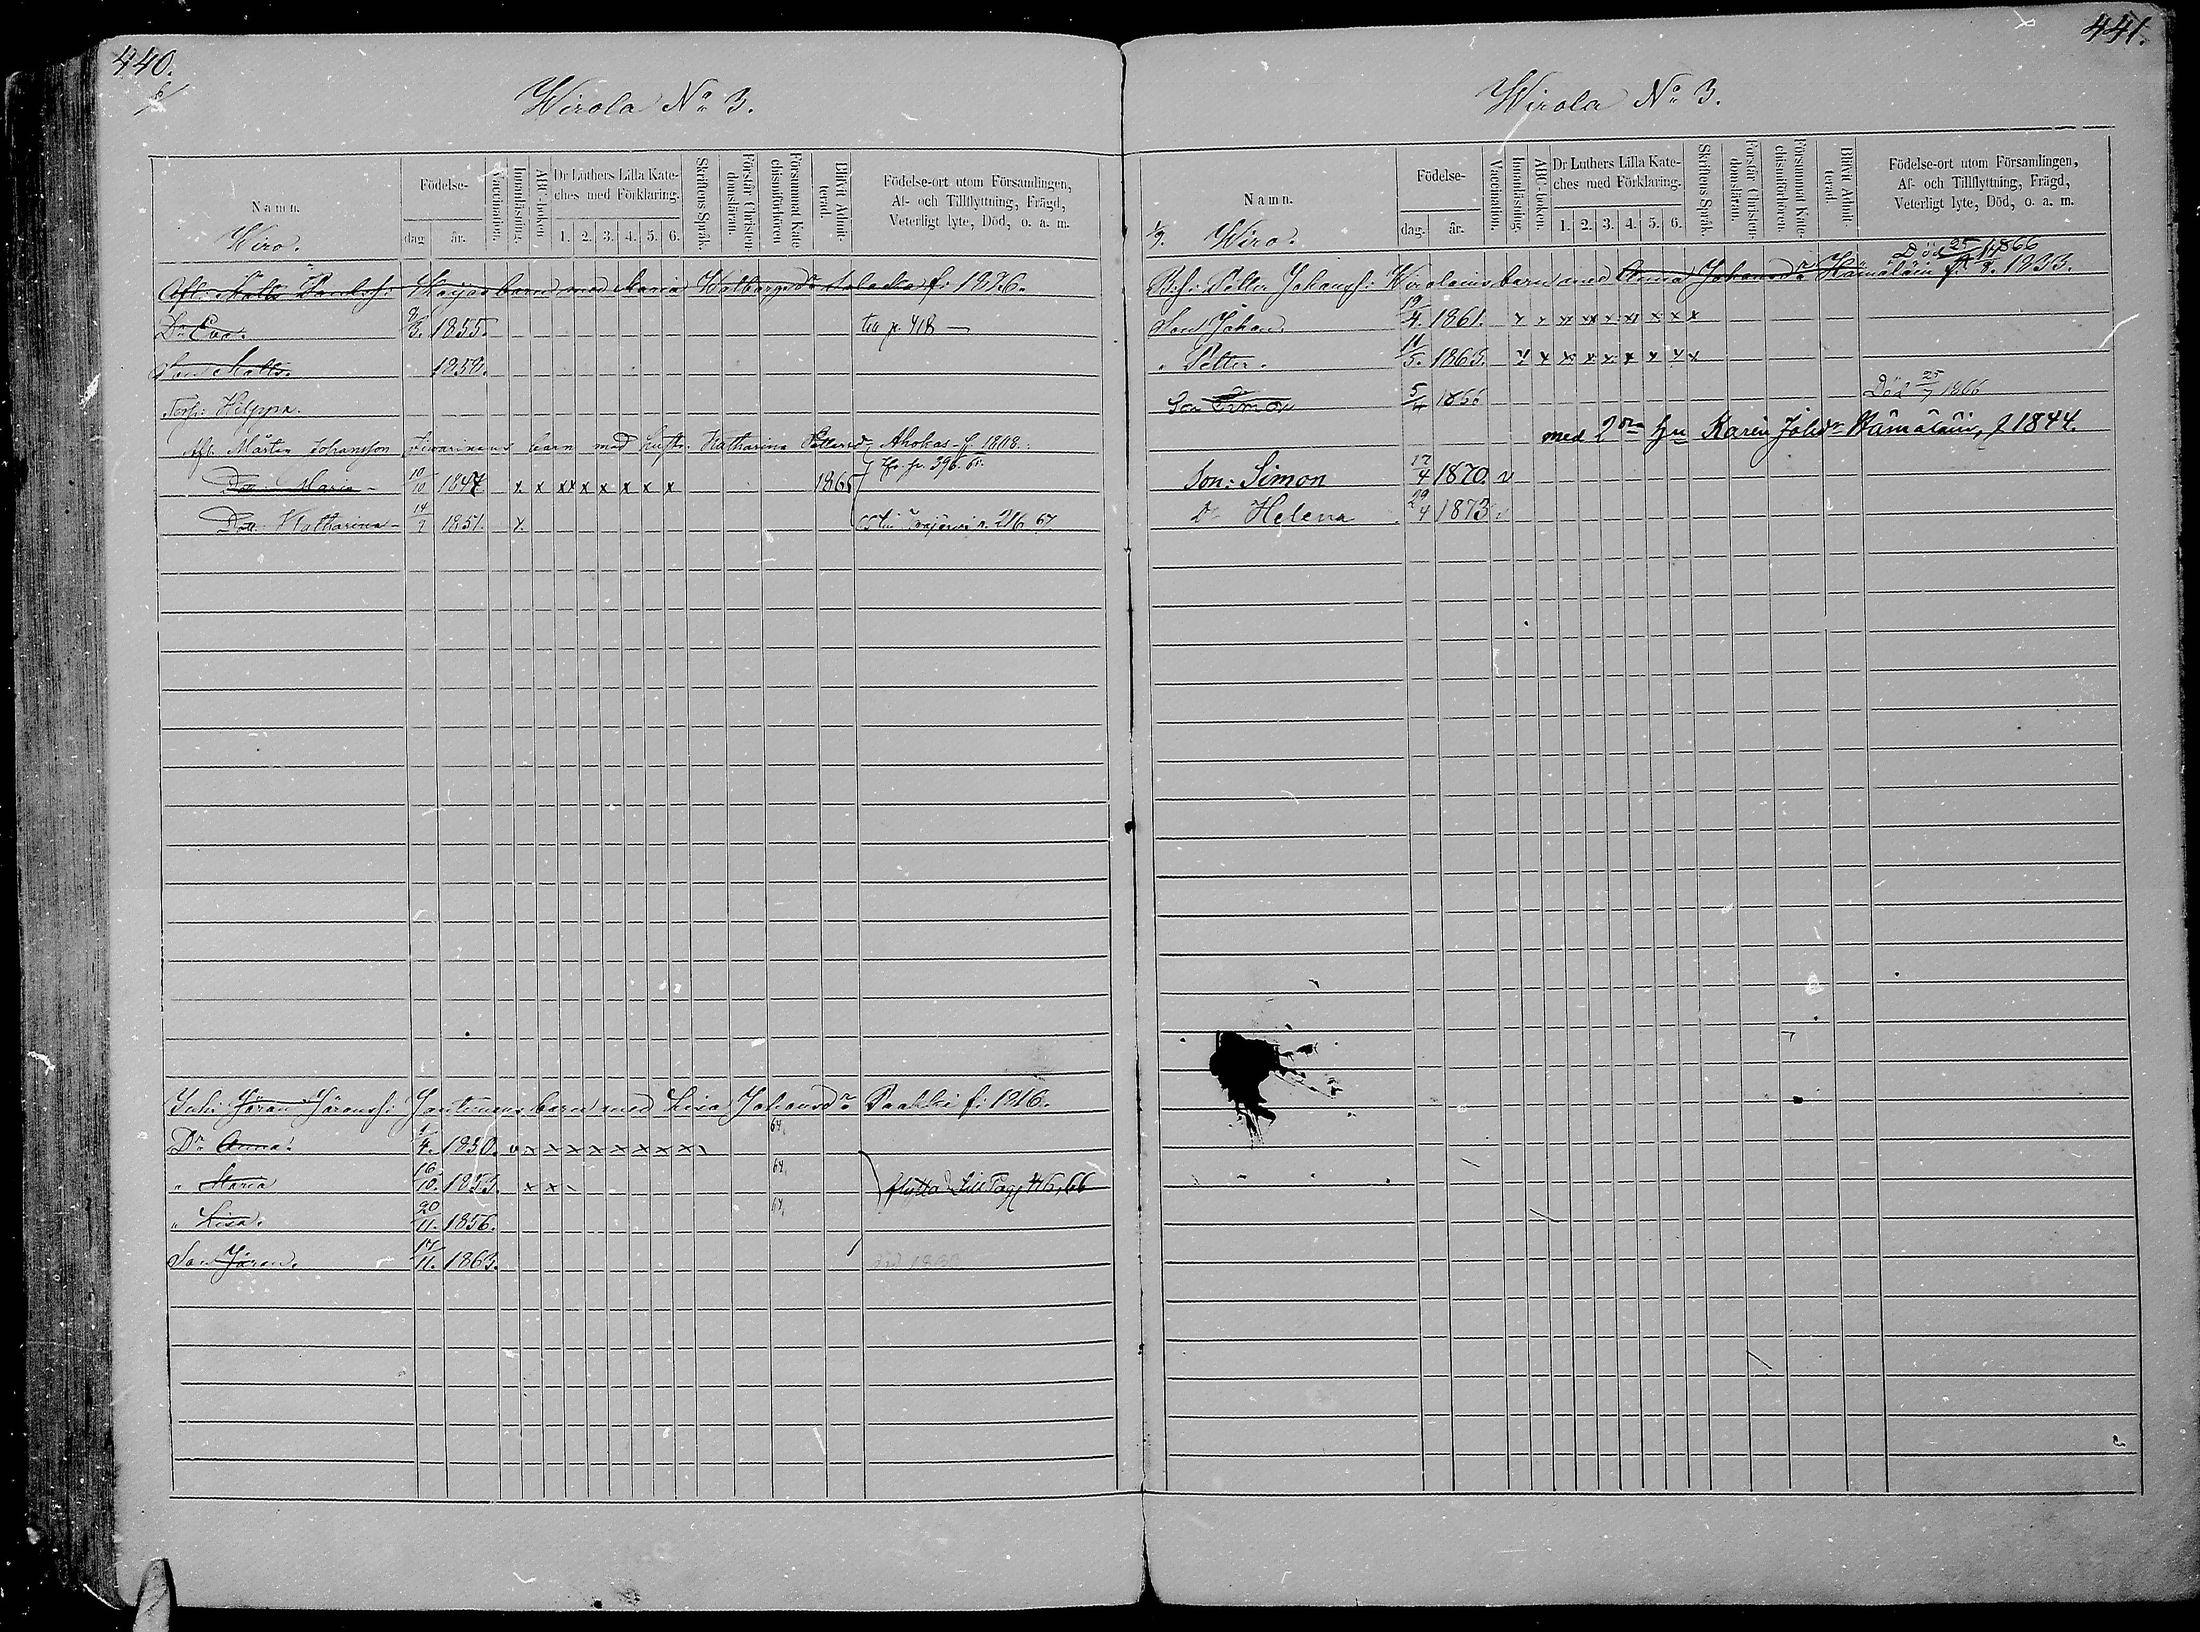 440.
Wirola No 3.
Namn.
Födelse-
dag
år.
Vaccination.
Innanläsning.
ABC-boken.
Dr Luthers Lilla Kate-
ches med Förklaring.
1. 2. 3. 4. 5. 6.
Skriftens Språk.
Förstår Christen-
domsläran.
Försummat Kate-
chismiförhören
Blifvit Admit-
terad.
Födelse-ort utom Församlingen,
Af- och Tillflyttning, Frägd,
Veterligt lyte, Död, o. a. m.
Wiro.
Afl: Matts Paulss: barn med Maria Walborgsdr f: 1826.
Dr Eva. 3. 1855. till p. 418
Son Matts. 1859.
Torp: Hilppa.
Afl. Mårten Johansson barn med hust. Katharina Pettersd. Ahokas f. 1808.
Dott. Maria 10/10 1847 x x xx x x x x x 1865 p. 396. 65.
Dott. Katharina 14/9 1851. x. p. 216 67
Inh: Göran Göranss: Jantunens barn med Lisa Johansdr Paakki f: 1816.
Dr Anna. 4. 1850. v x x x x x x x x 64.
" Maria 16/10. 1853. x x 64. flyttad till Pag 416, 66
" Lisa. 20/11. 1856. 64.
Son Göran. 17/11. 1863.
441.
Wirola No 3.
Namn.
Födelse-
dag.
år.
Vaccination.
Innanläsning.
ABC-boken.
Dr Luthers Lilla Kate-
ches med Förklaring.
1. 2. 3. 4. 5. 6.
Skriftens Språk.
Förstår Christen-
domsläran.
Försummat Kate-
chismiförhören.
Blifvit Admit-
terad.
Födelse-ort utom Församlingen,
Af- och Tillflyttning, Frägd,
Veterligt lyte, Död, o. a. m.
1/9. Wiro.
Död 25/ 1866
Petter Johanss: Wirolains barn med Anna Johansdr Hämäläin f. 1833.
Son Johan 19/4. 1861. x x x xx x x x x x
" Petter. 11/5. 1865. x x x x x x x x x
Son Simon 5/4 1866 Död 25/7 1866
med 2dra hu Karin Johdr Hämäläin, f 1844.
Son: Simon 17/4 1870. v
Dr Helena 29/4 1873. v